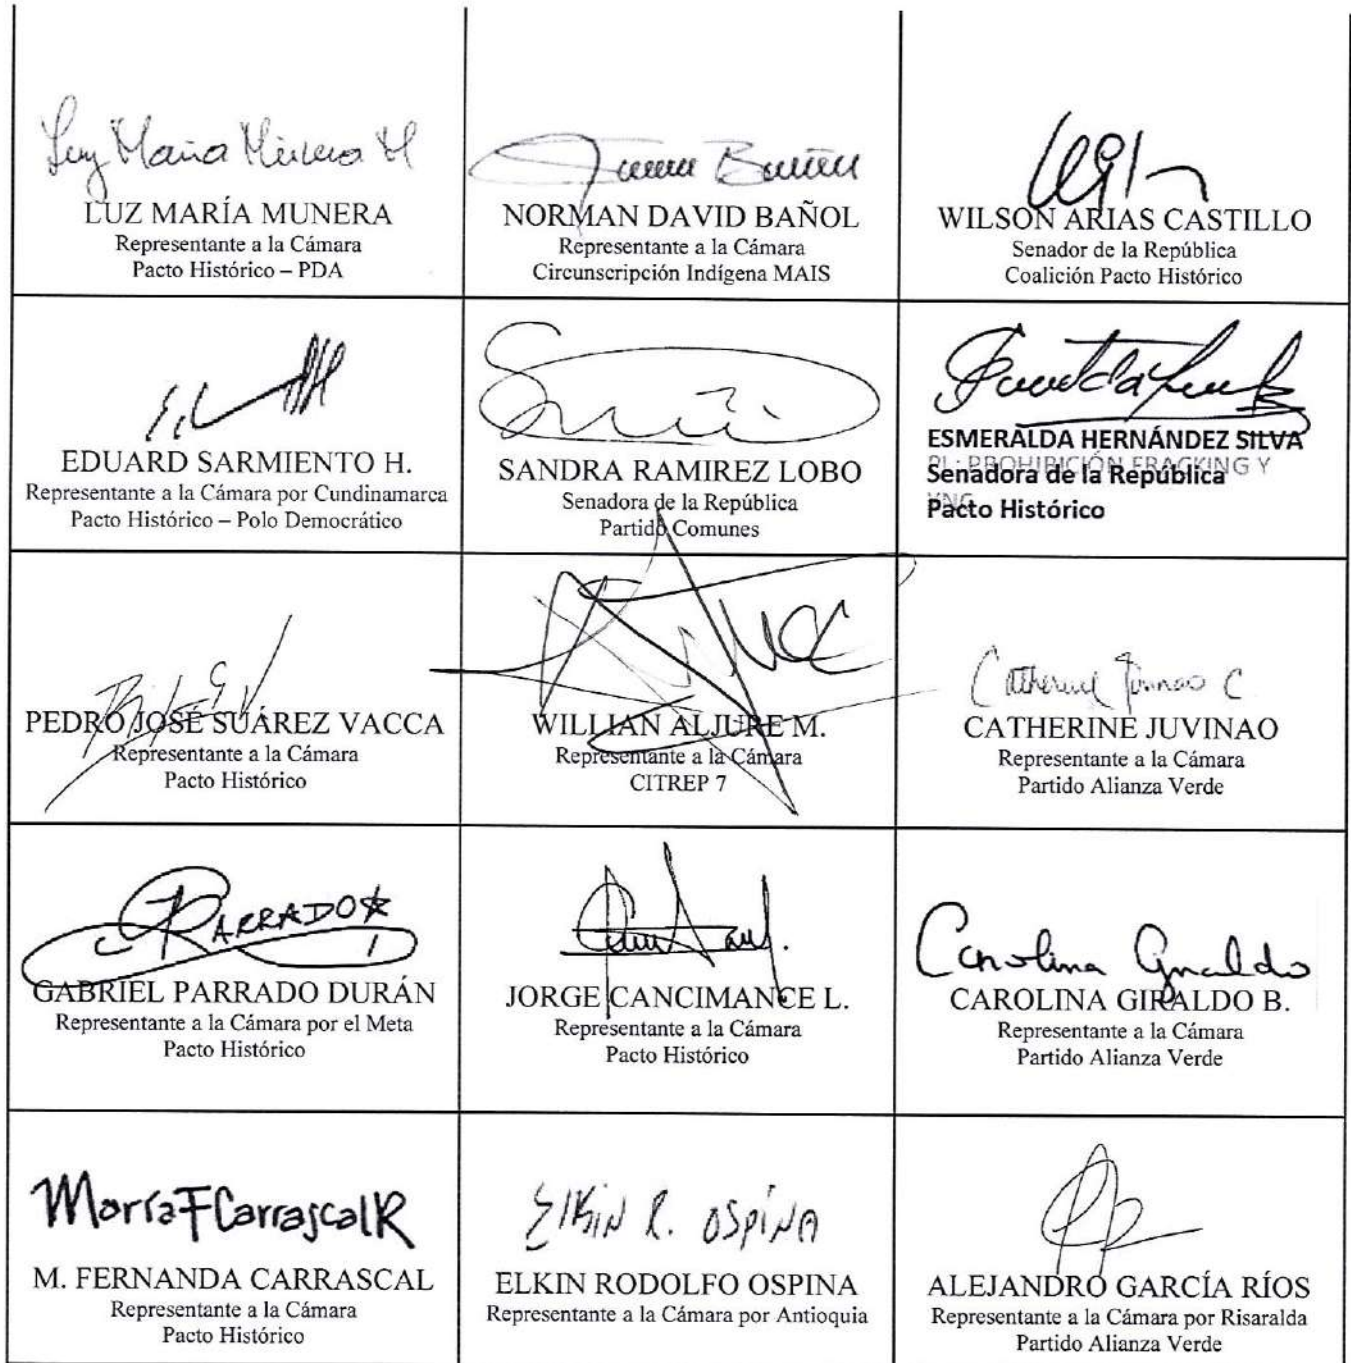 Luz María Munera M
LUZ MARÍA MUNERA
Representante a la Cámara
Pacto Histórico – PDA
NORMAN DAVID BAÑOL
Representante a la Cámara
Circunscripción Indígena MAIS
WILSON ARIAS CASTILLO
Senador de la República
Coalición Pacto Histórico
EDUARD SARMIENTO H.
Representante a la Cámara por Cundinamarca
Pacto Histórico – Polo Democrático
SANDRA RAMIREZ LOBO
Senadora de la República
Partido Comunes
ESMERALDA HERNÁNDEZ SILVA
PL: PROHIBICIÓN FRACKING Y
Senadora de la República
YNC
Pacto Histórico
PEDRO JOSÉ SUÁREZ VACCA
Representante a la Cámara
Pacto Histórico
WILLIAN ALJURE M.
Representante a la Cámara
CITREP 7
Catherine Juvinao C
CATHERINE JUVINAO
Representante a la Cámara
Partido Alianza Verde
PARRADO
GABRIEL PARRADO DURÁN
Representante a la Cámara por el Meta
Pacto Histórico
JORGE CANCIMANCE L.
Representante a la Cámara
Pacto Histórico
Carolina Giraldo
CAROLINA GIRALDO B.
Representante a la Cámara
Partido Alianza Verde
María F Carrascal R
M. FERNANDA CARRASCAL
Representante a la Cámara
Pacto Histórico
Elkin R. OSPINA
ELKIN RODOLFO OSPINA
Representante a la Cámara por Antioquia
ALEJANDRO GARCÍA RÍOS
Representante a la Cámara por Risaralda
Partido Alianza Verde